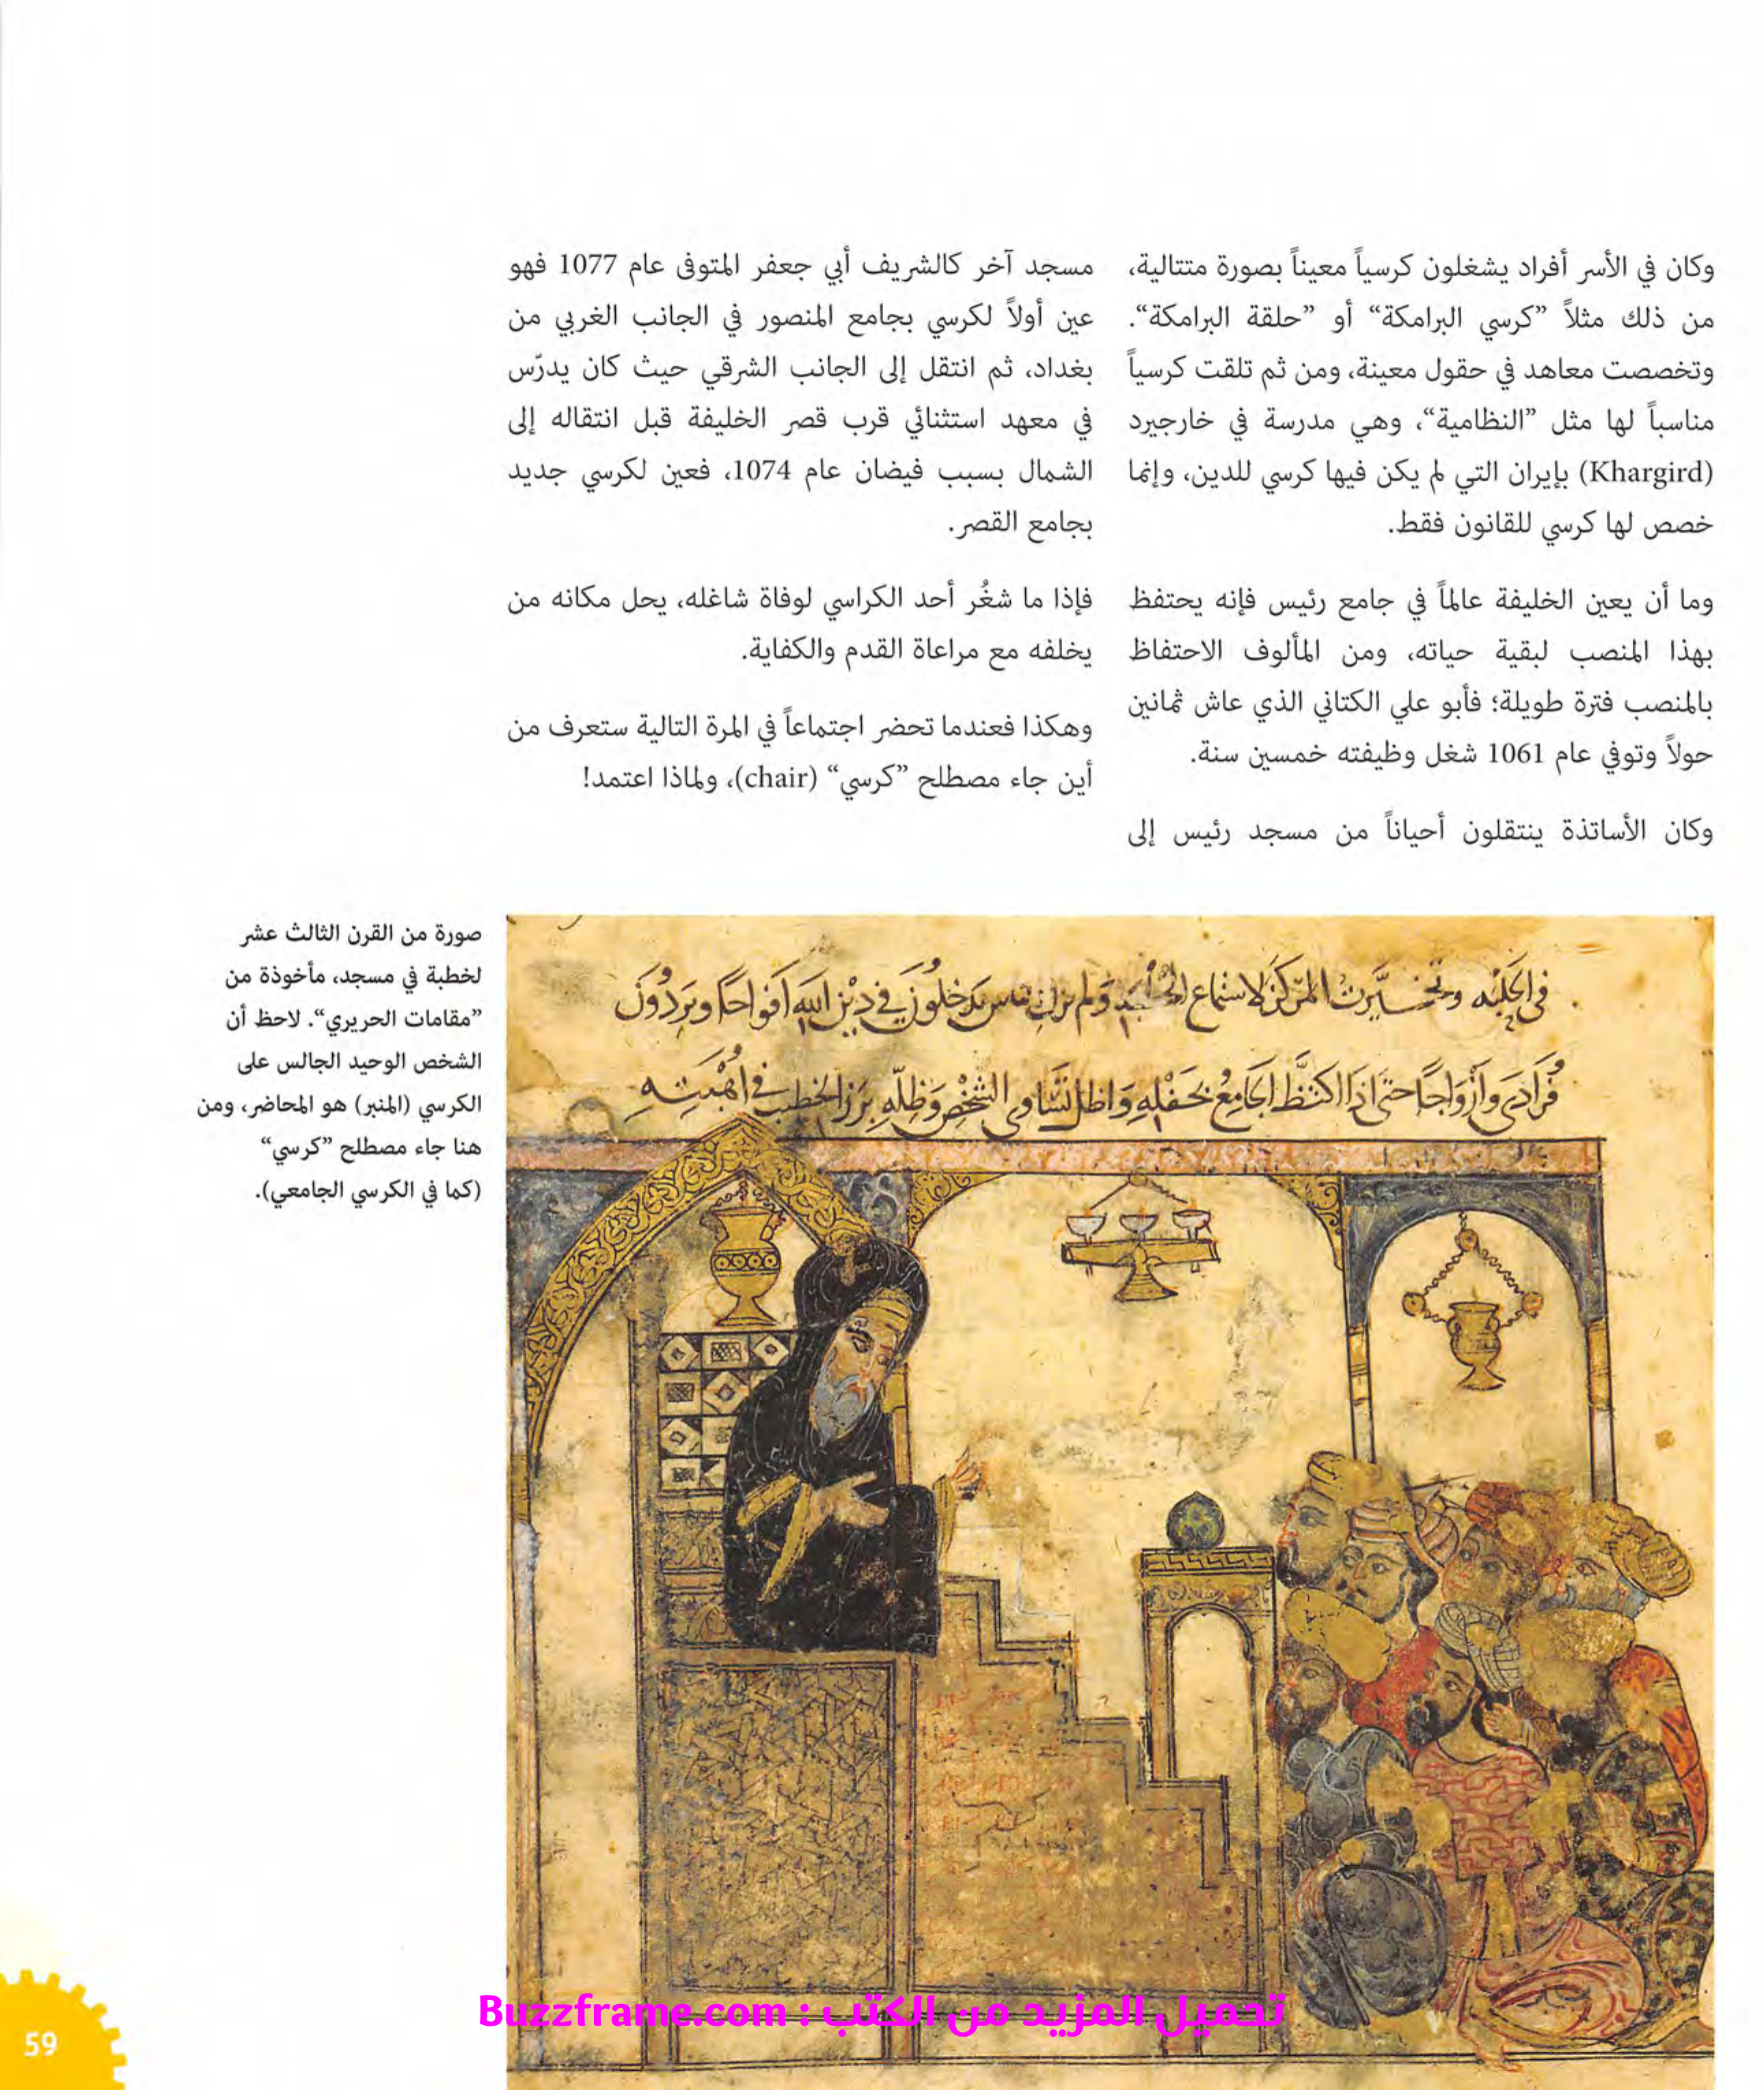 وكان في الأسر أفراد يشغلون كرسياً معيناً بصورة متتالية،
من ذلك مثلاً ”كرسي البرامكة“ أو ”حلقة البرامكة“.
وتخصصت معاهد في حقول معينة، ومن ثم تلقت كرسياً
مناسباً لها مثل ”النظامية“، وهي مدرسة في خارجيرد
(Khargird) بإيران التي لم يكن فيها كرسي للدين، وإنما
خصص لها كرسي للقانون فقط.
وما أن يعين الخليفة عالماً في جامع رئيس فإنه يحتفظ
بهذا المنصب لبقية حياته، ومن المألوف الاحتفاظ
بالمنصب فترة طويلة؛ فأبو علي الكتاني الذي عاش ثمانين
حولاً وتوفي عام 1061 شغل وظيفته خمسين سنة.
وكان الأساتذة ينتقلون أحياناً من مسجد رئيس إلى
مسجد آخر كالشريف أبي جعفر المتوفى عام 1077 فهو
عين أولاً لكرسي بجامع المنصور في الجانب الغربي من
بغداد، ثم انتقل إلى الجانب الشرقي حيث كان يدرّس
في معهد استثنائي قرب قصر الخليفة قبل انتقاله إلى
الشمال بسبب فيضان عام 1074، فعين لكرسي جديد
بجامع القصر.
فإذا ما شغُر أحد الكراسي لوفاة شاغله، يحل مكانه من
يخلفه مع مراعاة القدم والكفاية.
وهكذا فعندما تحضر اجتماعاً في المرة التالية ستعرف من
أين جاء مصطلح ”كرسي“ (chair)، ولماذا اعتمد!
في الحلبة وتخيرت المركز لاستماع ولم يزل الناس يدخلون في دين الله أفواجا ويردون
فرادى وأزواجا حتى إذا اكتظ الجامع بحفله وأظل تساوي الشخص وظله برز الخطيب في أهبته
صورة من القرن الثالث عشر
لخطبة في مسجد، مأخوذة من
”مقامات الحريري“. لاحظ أن
الشخص الوحيد الجالس على
الكرسي (المنبر) هو المحاضر، ومن
هنا جاء مصطلح ”كرسي“
(كما في الكرسي الجامعي).
تحميل المزيد من الكتب : Buzzframe.com
59